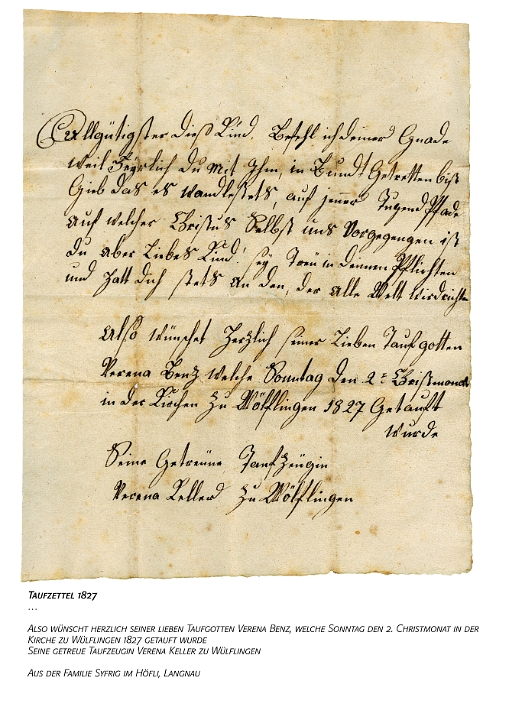 Allgütigster dieß Kind, Befehl ich deiner Gnade
weil Feyrlich du mit Ihm in Bund Getretten bist
Gieb das es wandle stets, auf jener Tugend Pfade
auf welcher Christus Selbst uns Vorgegangen ist
du aber Liebes Kind! sey Treü in deinen Pflichten
und Halt dich stets an den, der alle Welt wird richten
Also wünschet Herzlich seiner Lieben Taufgotten
Verena Benz welche Sonntag den 2t Christmonat
in der Kirchen zu Wölflingen 1827 Getauft
wurde
Seine Getreüe Taufzeügin
Verena Keller zu Wölflingen
Taufzettel 1827
...
Also wünscht herzlich seiner lieben Taufgotten Verena Benz, welche Sonntag den 2. Christmonat in der
Kirche zu Wülflingen 1827 getauft wurde
Seine getreue Taufzeugin Verena Keller zu Wülflingen
Aus der Familie Syfrig im Höfli, Langnau